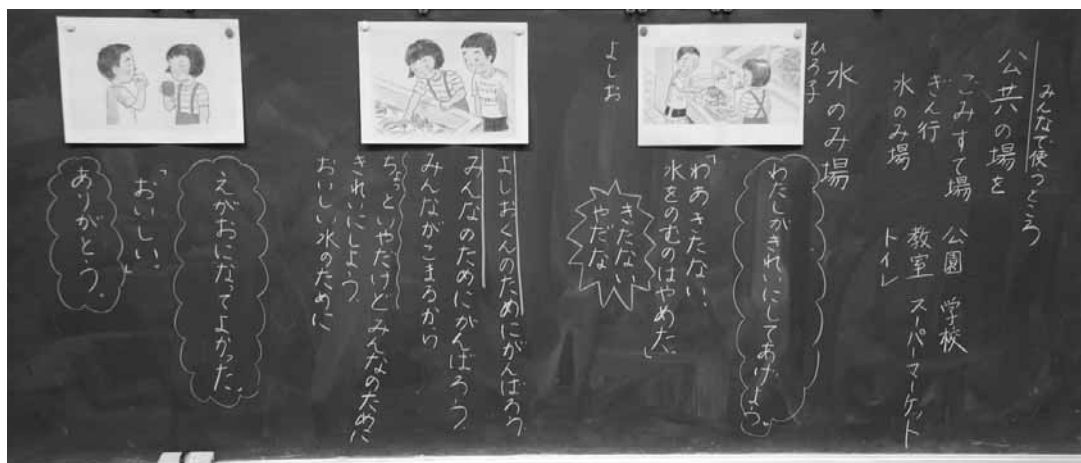 みんなで使うところ
公共の場を
ごみすて場
ぎん行
水のみ場
公園 学校
教室 スーパーマーケット
トイレ
水のみ場
ひろ子
わたしがきれいにしてあげよう。
よしお
「わあきたない、
水をのむのはやめた。」
きたない
やだな
よしおくんのためにがんばろう
みんなのためにがんばろう
みんながこまるから
ちょっといやだけどみんなのために
きれいにしよう
おいしい水のために
えがおになってよかった。
「おいしい。」
ありがとう。